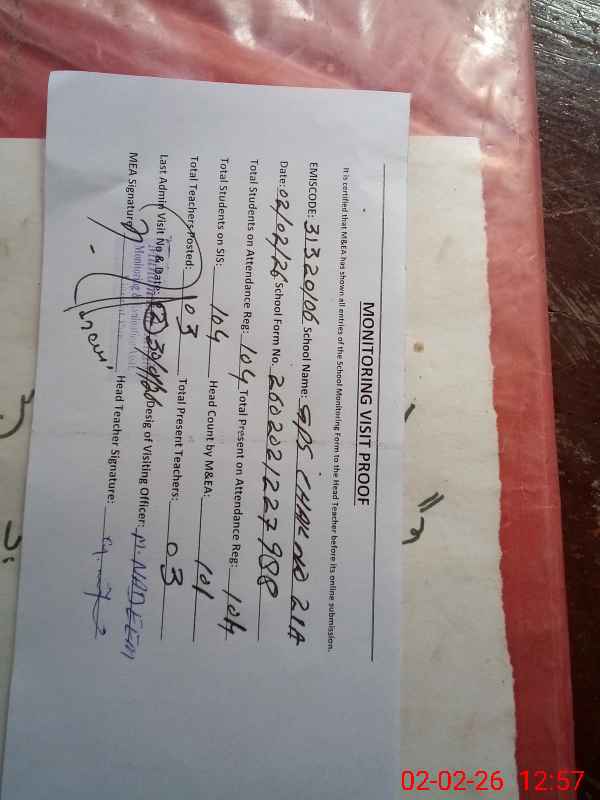 MONITORING VISIT PROOF
It is certified that M&EA has shown all entries of the School Monitoring Form to the Head Teacher before its online submission.
EMISCODE: 31320106 School Name: GPS CHAK NO 21A
Date: 02/02/26 School Form No. 2602021227988
Total Students on Attendance Reg: 104 Total Present on Attendance Reg: 104
Total Students on SIS: 104 Head Count by M&EA: 101
Total Teachers Posted: 03 Total Present Teachers: 03
Last Admin Visit No & Date: 30/1/26 Desig of Visiting Officer: M. NADEEM
MEA Signature: Head Teacher Signature:
Monitoring &
02-02-26 12:57